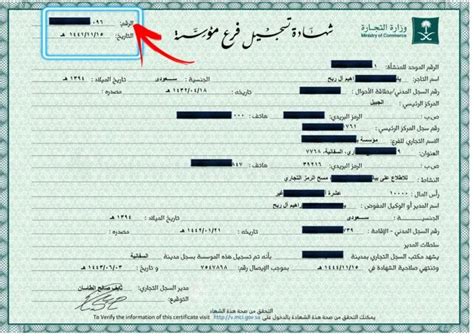 وزارة التجارة
Ministry of Commerce
شهادة تسجيل فرع مؤسسة
الرقم: ٠٩٦
التاريخ: ١٤٤١/١١/١٥ هـ
الرقم الموحد للمنشأة:
اسم التاجر: اهيم آل ريح الجنسية: سعودي تاريخ الميلاد: ١٣٩٤ هـ
رقم السجل المدني/بطاقة الأحوال: ١٤٣٢/٠٤/١٨ هـ مصدره:
المركز الرئيسي: الجبيل
ص.ب: الرمز البريدي: هاتف: ٠٠٠
رقم سجل المركز الرئيسي:
الاسم التجاري للفرع: مؤسسة
العنوان: السفانية
ص.ب: الرمز البريدي: ٣٩٢١٦ هاتف:
النشاط: للاطلاع على مسح الرمز التجاري
رأس المال: ١٠٠٠٠ عشرة
اسم المدير أو الوكيل المفوض: اهيم آل ريح
الجنسية: سعودي تاريخ الميلاد: ١٣٩٤ هـ
رقم السجل المدني - الإقامة: تاريخه: ١٤٤٢/٠١/٢١ هـ مصدره:
سلطات المدير
يشهد مكتب السجل التجاري بمدينة بأنه تم تسجيل هذه المؤسسة بسجل مدينة السفانية
في ١٤٤١/١١/١٥ هـ بموجب الإيصال رقم
وتنتهي صلاحية الشهادة في ١٤٤٣/٠٦/٠٣ هـ
مدير السجل التجاري:
التوقيع:
التحقق من صحة هذة الشهادة
To Verify the information of this certificate visit http://v.mci.gov.sa التحقق من صحة هذة الشهاد بالدخول على